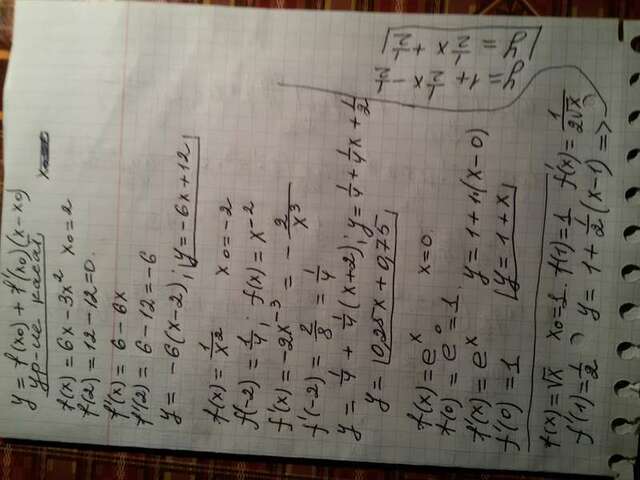 y = f(x₀) + f'(x₀)(x-x₀)
ур-ие касат.
f(x) = 6x-3x² x₀=2
f(2) = 12-12=0.
f'(x) = 6-6x
f'(2) = 6-12=-6
y = -6(x-2); y=-6x+12
f(x) = 1/x² x₀=-2
f(-2) = 1/4; f(x)=x⁻²
f'(x) = -2x⁻³ = -2/x³
f'(-2) = 2/8 = 1/4
y = 1/4 + 1/4(x+2); y=1/4+1/4x+1/2
y = 0,25x+0,75
f(x) = eˣ x=0.
f(0) = e⁰=1.
f'(x) = eˣ y=1+1(x-0)
f'(0) = 1 y=1+x
f(x)=√x x₀=1. f(1)=1 f'(x)=1/2√x;
f'(1)=1/2; y=1+1/2(x-1) =>
y=1+1/2x-1/2
y=1/2x+1/2